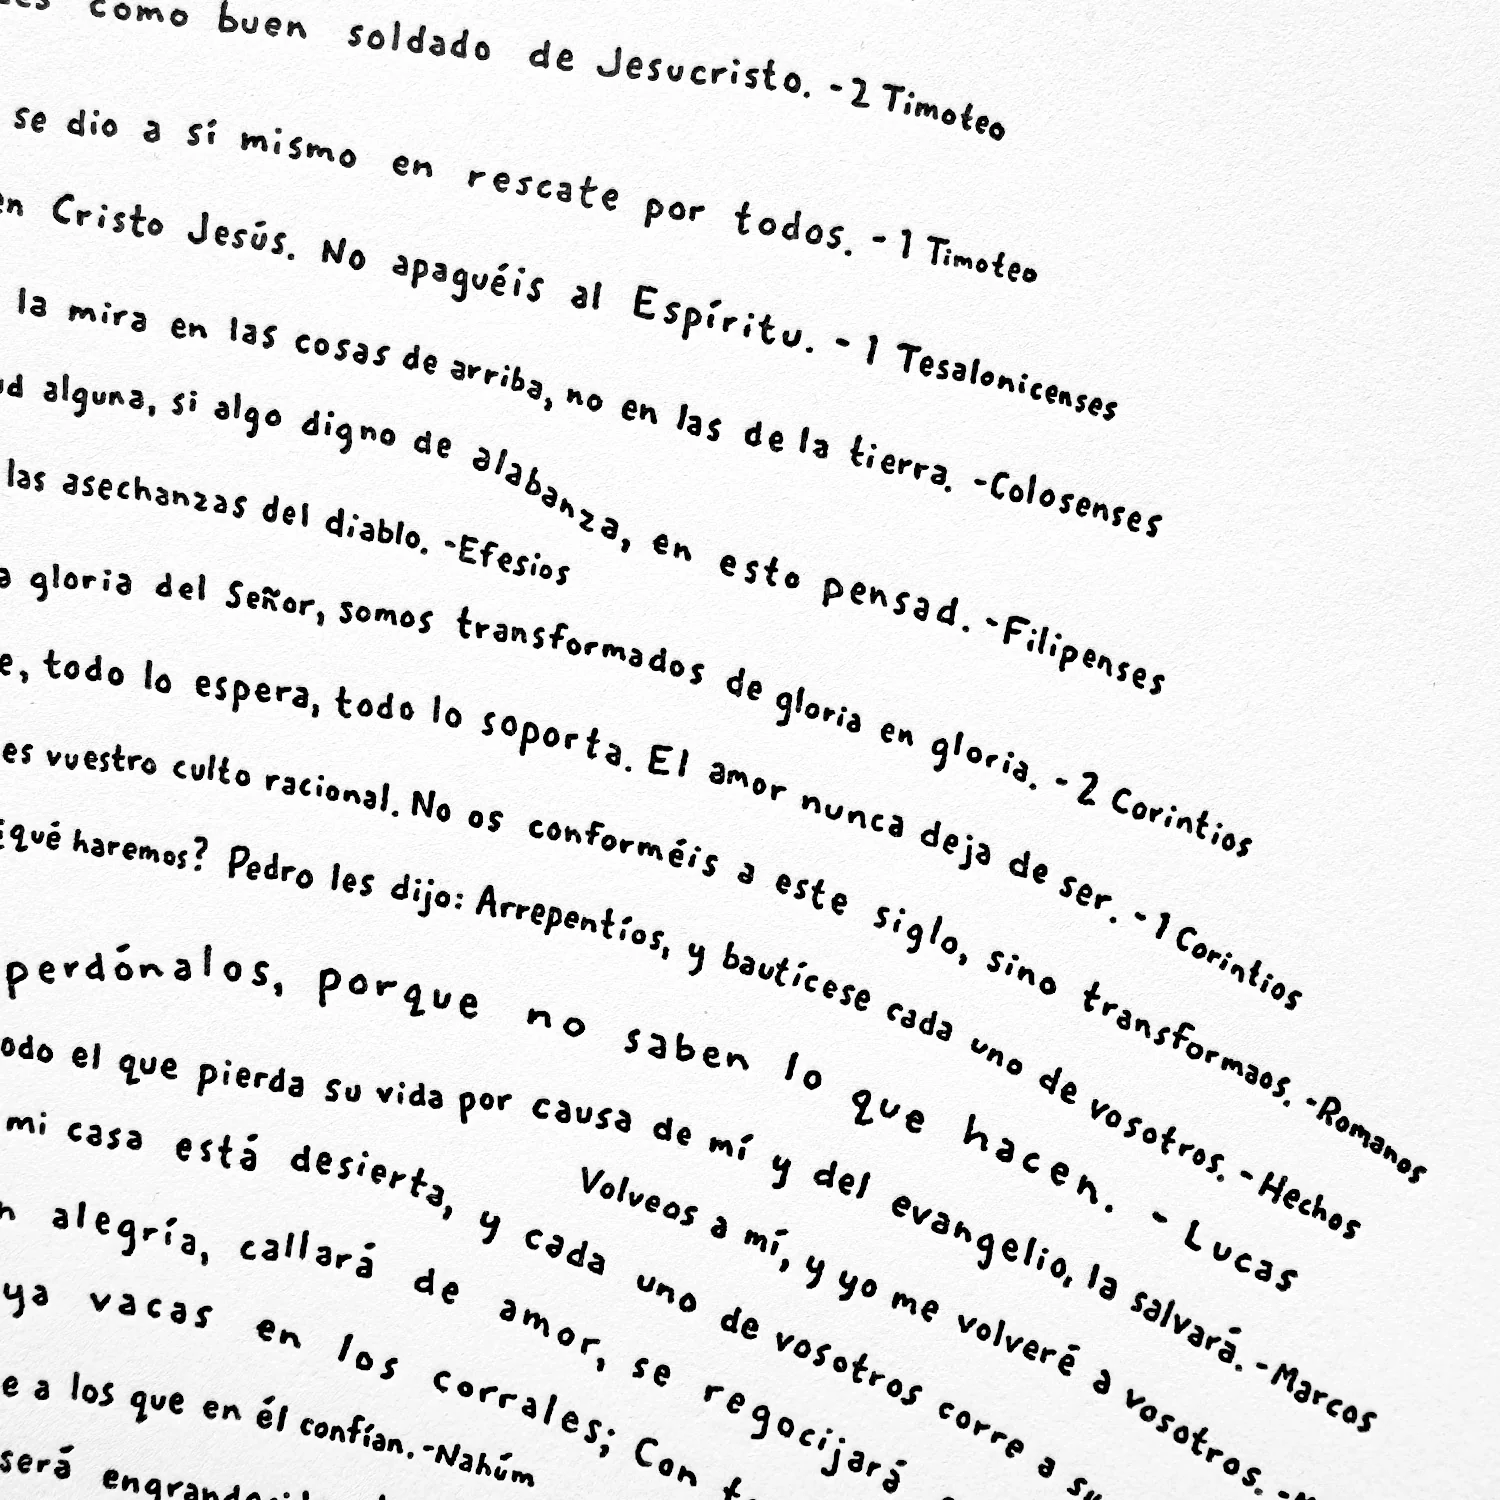 como buen soldado de Jesucristo. -2 Timoteo
se dio a sí mismo en rescate por todos. -1 Timoteo
en Cristo Jesús. No apaguéis al Espíritu. -1 Tesalonicenses
la mira en las cosas de arriba, no en las de la tierra. -Colosenses
alguna, si algo digno de alabanza, en esto pensad. -Filipenses
las asechanzas del diablo. -Efesios
a gloria del Señor, somos transformados de gloria en gloria. -2 Corintios
e, todo lo espera, todo lo soporta. El amor nunca deja de ser. -1 Corintios
es vuestro culto racional. No os conforméis a este siglo, sino transformaos. -Romanos
¿qué haremos? Pedro les dijo: Arrepentíos, y bautícese cada uno de vosotros. -Hechos
perdónalos, porque no saben lo que hacen. -Lucas
odo el que pierda su vida por causa de mí y del evangelio, la salvará. -Marcos
Volveos a mí, y yo me volveré a vosotros.
mi casa está desierta, y cada uno de vosotros corre a su
n alegría, callará de amor, se regocijará
ya vacas en los corrales; Con
e a los que en él confían. -Nahúm
será